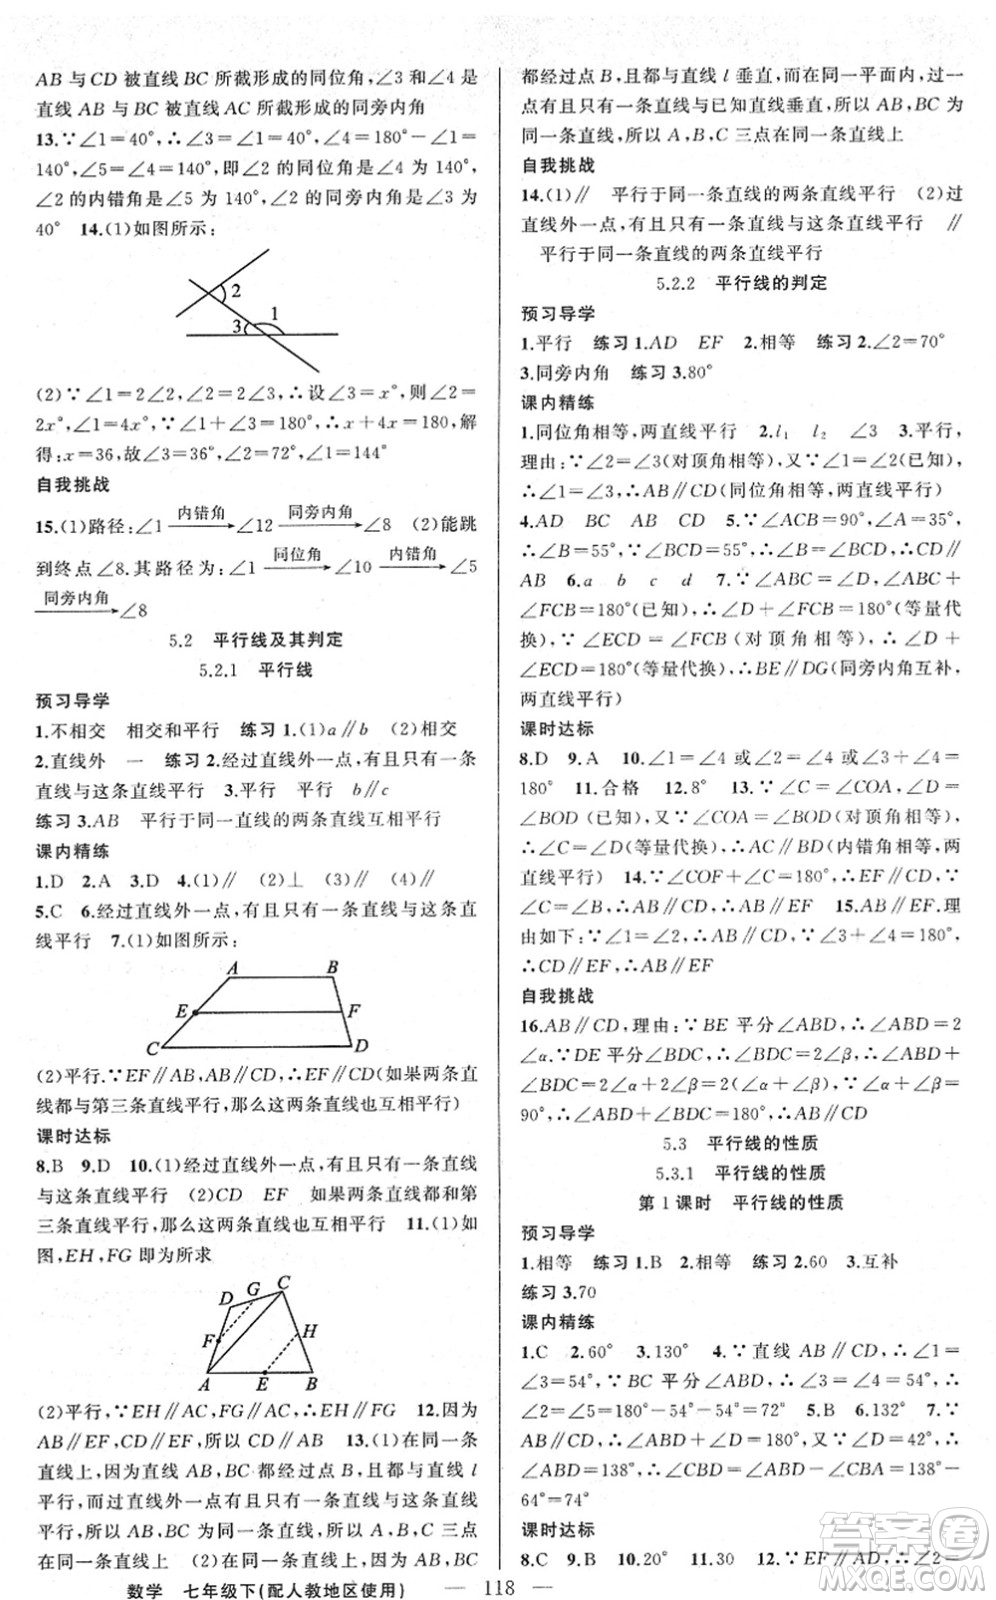 AB 与 CD 被直线 BC 所截形成的同位角,∠3 和∠4 是
直线 AB 与 BC 被直线 AC 所截形成的同旁内角
13.∵∠1=40°,∴∠3=∠1=40°,∠4=180°-∠1=
140°,∠5=∠4=140°,即∠2 的同位角是∠4 为 140°,
∠2 的内错角是∠5 为 140°,∠2 的同旁内角是∠3 为
40° 14.(1)如图所示:
2
3 1
(2)∵∠1=2∠2,∠2=2∠3,∴设∠3=x°,则∠2=
2x°,∠1=4x°.∵∠1+∠3=180°,∴x+4x=180,解
得:x=36,故∠3=36°,∠2=72°,∠1=144°
自我挑战
15.(1)路径:∠1 内错角 ∠12 同旁内角 ∠8 (2)能跳
到终点∠8.其路径为:∠1 同位角 ∠10 内错角 ∠5
同旁内角 ∠8
5.2 平行线及其判定
5.2.1 平行线
预习导学
1.不相交 相交和平行 练习 1.(1)a∥b (2)相交
2.直线外 一 练习 2.经过直线外一点,有且只有一条
直线与这条直线平行 3.平行 b∥c
练习 3.AB 平行于同一直线的两条直线互相平行
课内精练
1.D 2.A 3.D 4.(1)∥ (2)⊥ (3)∥ (4)∥
5.C 6.经过直线外一点,有且只有一条直线与这条直
线平行 7.(1)如图所示:
A B
E F
C D
(2)平行.∵EF∥AB,AB∥CD,∴EF∥CD(如果两条直
线都与第三条直线平行,那么这两条直线也互相平行)
课时达标
8.B 9.D 10.(1)经过直线外一点,有且只有一条直线
与这条直线平行 (2)CD EF 如果两条直线都和第
三条直线平行,那么这两条直线也互相平行 11.(1)如
图,EH,FG 即为所求
D G C
F H
A E B
(2)平行,∵EH∥AC,FG∥AC,∴EH∥FG 12.因为
AB∥EF,CD∥EF,所以 CD∥AB 13.(1)在同一条
直线上,因为直线 AB,BC 都经过点 B,且都与直线 l
平行,而过直线外一点有且只有一条直线与已知直线
平行,所以 AB,BC 为同一条直线,所以 A,B,C 三点
在同一条直线上 (2)在同一条直线上,因为 AB,BC
都经过点 B,且都与直线 l 垂直,而在同一平面内,过一
点有且只有一条直线与已知直线垂直,所以 AB,BC 为
同一条直线,所以 A,B,C 三点在同一条直线上
自我挑战
14.(1)∥ 平行于同一条直线的两条直线平行 (2)过
直线外一点,有且只有一条直线与这条直线平行 ∥
平行于同一条直线的两条直线平行
5.2.2 平行线的判定
预习导学
1.平行 练习 1.AD EF 2.相等 练习 2.∠2=70°
3.同旁内角 练习 3.80°
课内精练
1.同位角相等,两直线平行 2.l₁ l₂ ∠3 3.平行,
理由:∵∠2=∠3(对顶角相等),又∵∠1=∠2(已知),
∴∠1=∠3,∴AB∥CD(同位角相等,两直线平行)
4.AD BC AB CD 5.∵∠ACB=90°,∠A=35°,
∴∠B=55°,∵∠BCD=55°,∴∠B=∠BCD,∴CD∥
AB 6.a b c 7.∵∠ABC=∠D,∠ABC+
∠FCB=180°(已知),∴∠D+∠FCB=180°(等量代
换),∵∠ECD=∠FCB(对顶角相等),∴∠D+
∠ECD=180°(等量代换),∴BE∥DG(同旁内角互补,
两直线平行)
课时达标
8.D 9.A 10.∠1=∠4 或∠2=∠4 或∠3+∠4=
180° 11.合格 12.8° 13.∵∠C=∠COA,∠D=
∠BOD(已知),又∵∠COA=∠BOD(对顶角相等),
∴∠C=∠D(等量代换),∴AC∥BD(内错角相等,两
直线平行) 14.∵∠COF+∠C=180°,∴EF∥CD,
∵∠C=∠B,∴∠COF+∠B=180° 15.AB∥EF.理
由如下:∵∠1=∠2,∴AB∥CD,∵∠3+∠4=180°,
∴CD∥EF,∴AB∥EF
自我挑战
16.AB∥CD,理由:∵BE 平分∠ABD,∴∠ABD=2
∠α.∵DE 平分∠BDC,∴∠BDC=2∠β,∴∠ABD+
∠BDC=2∠α+2∠β=2(∠α+∠β),又∵∠α+∠β=
90°,∴∠ABD+∠BDC=180°,∴AB∥CD
5.3 平行线的性质
5.3.1 平行线的性质
第 1 课时 平行线的性质
预习导学
1.相等 练习 1.B 2.相等 练习 2.60 3.互补
练习 3.70
课内精练
1.C 2.60° 3.130° 4.∵直线 AB∥CD,∴∠1=
∠3=54°,∵BC 平分∠ABD,∴∠4=∠1=54°,∴
∠2=∠5=180°-54°-54°=72° 5.B 6.132° 7.∵
AB∥CD,∴∠ABD+∠D=180°,又∵∠D=42°,∴
∠ABD=138°,∴∠ABC=∠ABD-∠CBD=138°-
64°=74°
课时达标
8.C 9.C 10.20° 11.30 12.∵AD∥BC,∴∠B=
数学 七年级下(配人教地区使用) — 118 —
答案圈
MXQE.COM